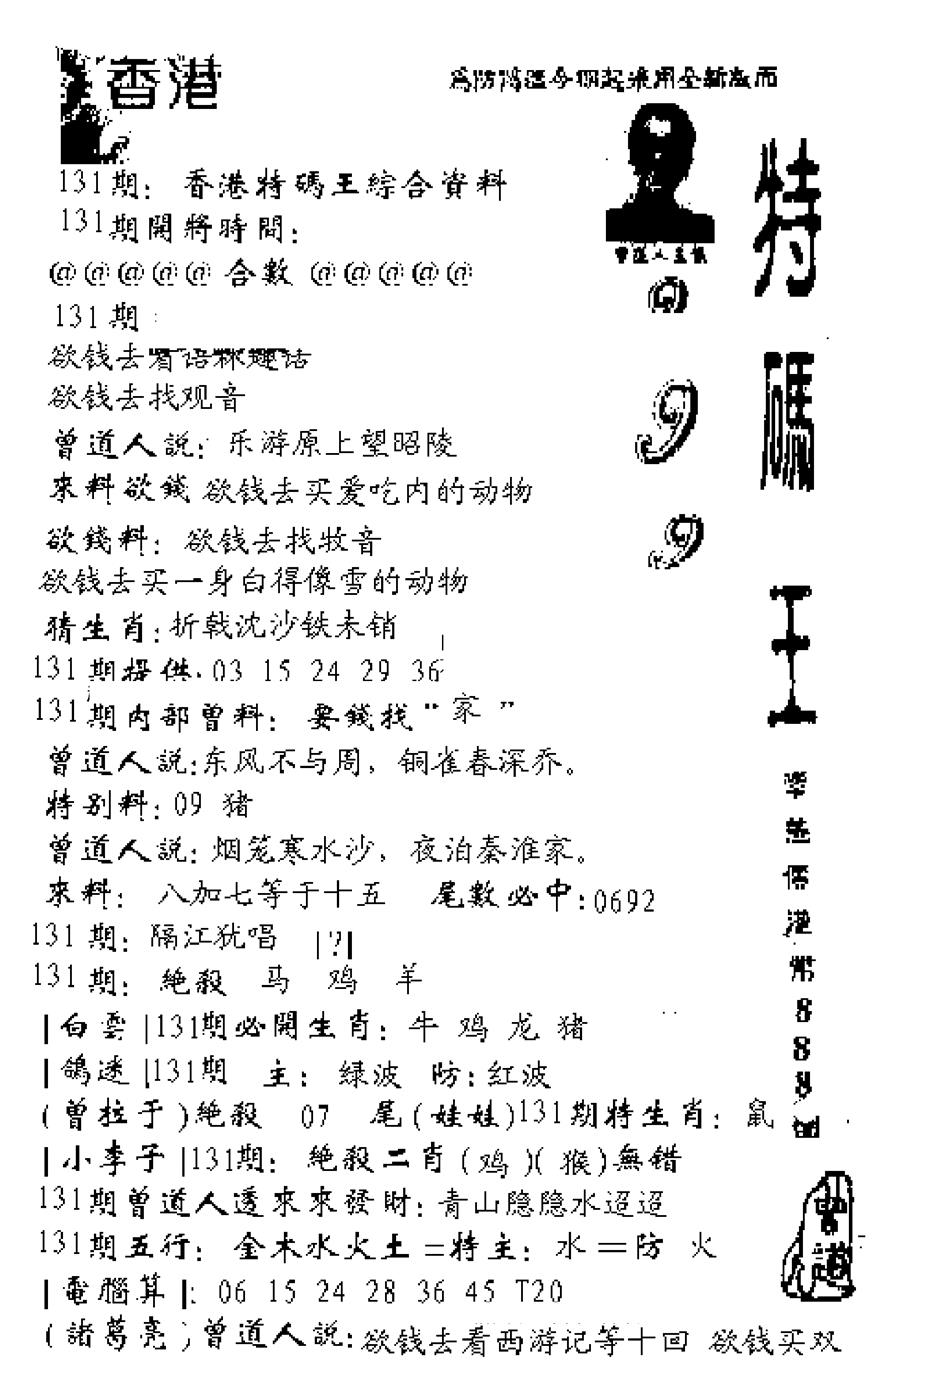 香港
為防偽造今期起采用全新版面
131期: 香港特碼王綜合資料
131期開將時間:
@@@@@合數@@@@@
131期:
欲钱去
欲钱去找观音
曾道人説: 乐游原上望昭陵
來料欲錢 欲钱去买爱吃内的动物
欲錢料: 欲钱去找牧音
欲钱去买一身白得像雪的动物
猜生肖:折戟沈沙铁未销
131期提供.03 15 24 29 36
131期内部曾料: 要錢找“家”
曾道人説:东风不与周，铜雀春深乔。
特别料:09 猪
曾道人説:烟笼寒水沙，夜泊秦淮家。
來料: 八加七等于十五 尾數必中:0692
131期: 隔江犹唱 |?|
131期: 絶殺 马 鸡 羊
|白雲|131期必開生肖: 牛 鸡 龙 猪
|鴿迷|131期 主: 绿波 防:红波
(曾拉于)絶殺 07 尾(娃娃)131期特生肖: 鼠
|小李子|131期: 絶殺二肖(鸡)(猴)無错
131期曾道人透來來發財:青山隐隐水迢迢
131期五行: 金木水火土=特主: 水=防 火
|電腦算|: 06 15 24 28 36 45 T20
(諸葛亮)曾道人説:欲钱去看西游记等十回 欲钱买双
曾道人主儀
9
9
特碼王
港幣888
曾道